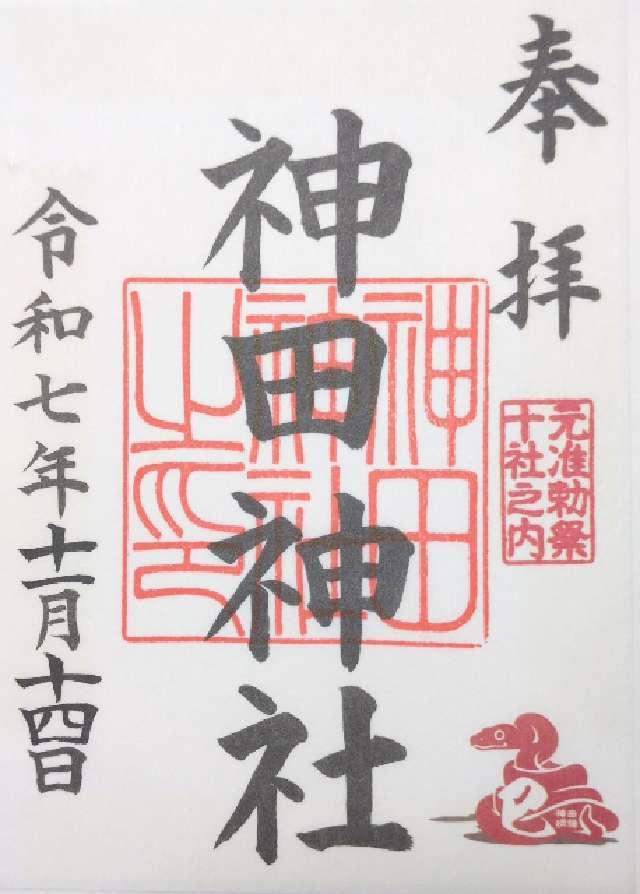 奉拝
元准勅祭
十社之内
神田神社
神田
神社
之印
令和七年十一月十四日
巳